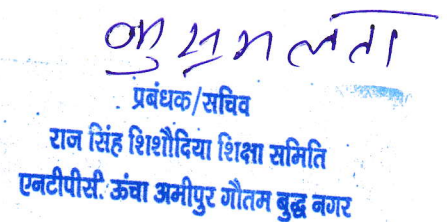 कुसुमलता
प्रबंधक/सचिव
राज सिंह शिशौदिया शिक्षा समिति
एनटीपीसी. ऊंचा अमीपुर गौतम बुद्ध नगर